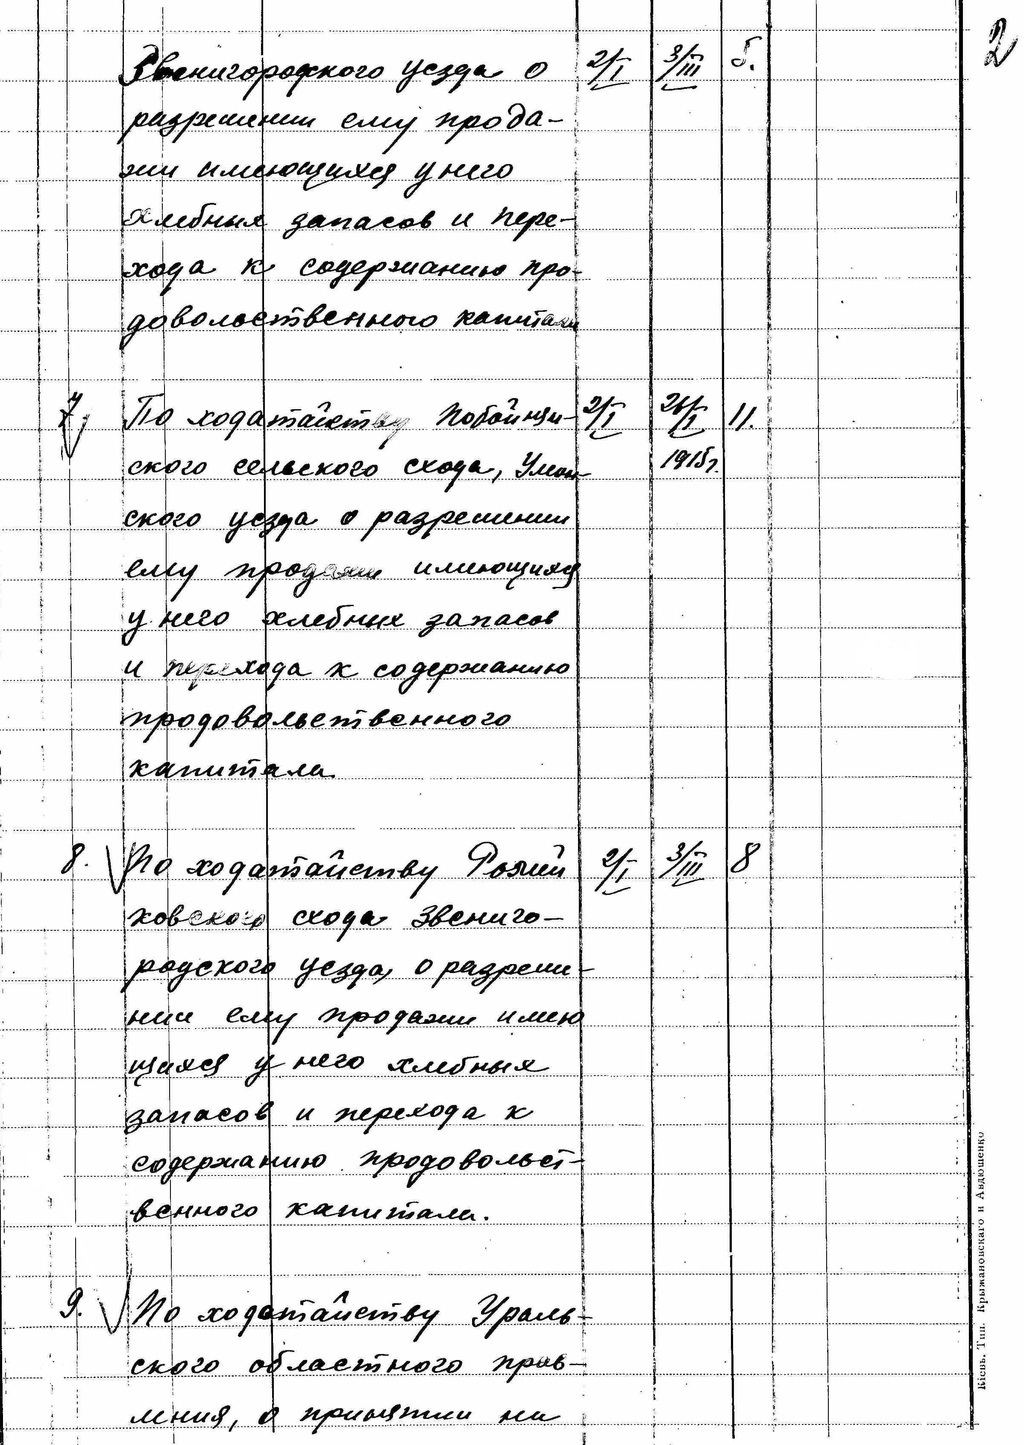 2
Звенигородского уезда о 2/I 3/III 5.
разрешении ему прода-
жи имеющихся у него
хлебных запасов и пере-
хода к содержанию про-
довольственного капитала
7, По ходатайству Побойнян- 2/I 26/I 11.
ского сельского схода, Уман- 1915г.
ского уезда о разрешении
ему продажи имеющихся
у него хлебных запасов
и перехода к содержанию
продовольственного
капитала
8. По ходатайству 2/I 3/III 8
ковского схода Звениго-
родского уезда, о разреше-
нии ему продажи имею
щихся у него хлебных
запасов и перехода к
содержанию продовольст-
венного капитала.
9. По ходатайству Ураль-
ского областного прав-
ления, о принятии на
Кіевъ. Тип. Крыжановскаго и Авдюшенко